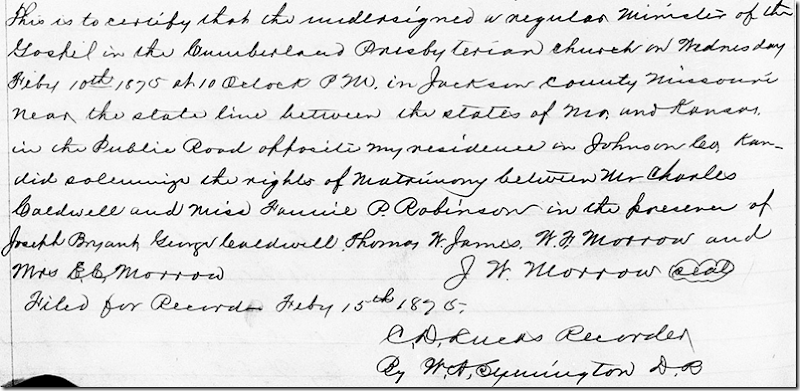 This is to certify that the undersigned a regular Minister of the
Gospel in the Cumberland Presbyterian church on Wednesday
Feby 10th 1875 at 10 Oclock P.M. in Jackson County Missouri
near the state line between the states of Mo, and Kansas,
in the Public Road opposite my residence in Johnson Co, Kan-
did solemnize the rights of Matrimony between Mr Charles
Caldwell and Miss Fannie P. Robinson in the presence of
Joseph Bryant, George Caldwell, Thomas W. James, W. F. Morrow and
Mrs E. C. Morrow J. W. Morrow seal
Filed for Record Feby 15th 1875.
C. D. Lucas Recorder
By W. A. Symington D. R